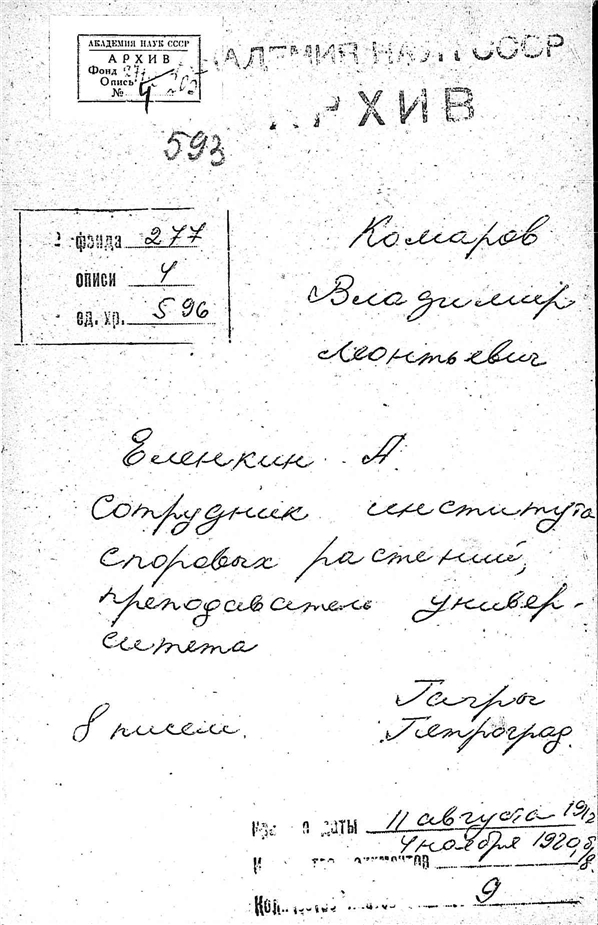 АКАДЕМИЯ НАУК СССР
АРХИВ
Фонд
Опись
№ 4
АКАДЕМИЯ НАУК СССР
АРХИВ
593
№ фонда 277
описи 4
ед. хр. 596
Комаров
Владимир
Леонтьевич
Еленкин А.
сотрудник института
споровых растений,
преподаватель универ-
ситета
8 писем.
Гагры
Петроград.
даты 11 августа 1912
4 ноября 1920
9